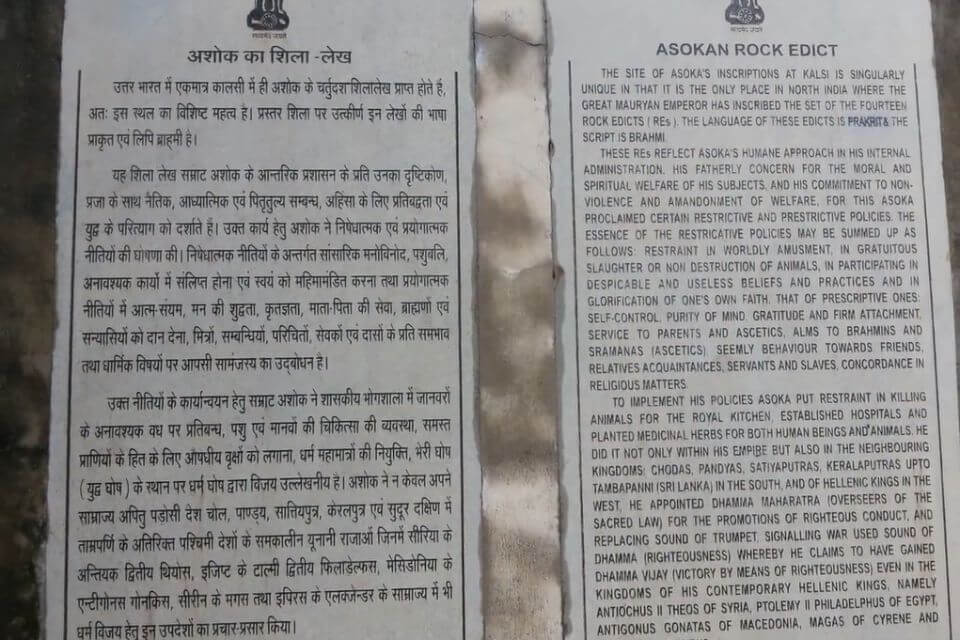 सत्यमेव जयते
अशोक का शिला -लेख
उत्तर भारत में एकमात्र कालसी में ही अशोक के चर्तुदश शिलालेख प्राप्त होते है,
अतः इस स्थल का विशिष्ट महत्व है। प्रस्तर शिला पर उत्कीर्ण इन लेखों की भाषा
प्राकृत एवं लिपि ब्राह्मी है।
यह शिला लेख सम्राट अशोक के आन्तरिक प्रशासन के प्रति उनका दृष्टिकोण,
प्रजा के साथ नैतिक, आध्यात्मिक एवं पितृतुल्य सम्बन्ध, अहिंसा के लिए प्रतिबद्धता एवं
युद्ध के परित्याग को दर्शाते है। उक्त कार्य हेतु अशोक ने निषेधात्मक एवं प्रयोगात्मक
नीतियों की घोषणा की। निषेधात्मक नीतियों के अन्तर्गत सांसारिक मनोविनोद, पशुबलि,
अनावश्यक कार्यो में संलिप्त होना एवं स्वयं को महिमामंडित करना तथा प्रयोगात्मक
नीतियों में आत्म-संयम, मन की शुद्धता, कृतज्ञता, माता-पिता की सेवा, ब्राह्मणों एवं
सन्यासियों को दान देना, मित्रों, सम्बन्धियों, परिचितों, सेवकों एवं दासों के प्रति समभाव
तथा धार्मिक विषयों पर आपसी सामंजस्य का उद्बोधन है।
उक्त नीतियों के कार्यान्वयन हेतु सम्राट अशोक ने शासकीय भोगशाला में जानवरों
के अनावश्यक वध पर प्रतिबन्ध, पशु एवं मानवों की चिकित्सा की व्यवस्था, समस्त
प्राणियों के हित के लिए औषधीय वृक्षों को लगाना, धर्म महामात्रों की नियुक्ति, भेरी घोष
( युद्ध घोष ) के स्थान पर धर्म घोष द्वारा विजय उल्लेखनीय है। अशोक ने न केवल अपने
साम्राज्य अपितु पडोसी देश चोल, पाण्डय, सातियपुत्र, केरलपुत्र एवं सुदूर दक्षिण में
ताम्रपर्णि के अतिरिक्त पश्चिमी देशों के समकालीन यूनानी राजाओं जिनमें सीरिया के
अन्तियक द्वितीय थियोस, इजिप्ट के टाल्मी द्वितीय फिलाडेल्फस, मेसिडोनिया के
एन्टीगोनस गोनकिस, सीरीन के मगस तथा इपिरस के एलक्जेन्डर के साम्राज्य में भी
धर्म विजय हेतु इन उपदेशों का प्रचार-प्रसार किया।
सत्यमेव जयते
ASOKAN ROCK EDICT
THE SITE OF ASOKA'S INSCRIPTIONS AT KALSI IS SINGULARLY
UNIQUE IN THAT IT IS THE ONLY PLACE IN NORTH INDIA WHERE THE
GREAT MAURYAN EMPEROR HAS INSCRIBED THE SET OF THE FOURTEEN
ROCK EDICTS ( REs ). THE LANGUAGE OF THESE EDICTS IS PRAKRIT& THE
SCRIPT IS BRAHMI.
THESE REs REFLECT ASOKA'S HUMANE APPROACH IN HIS INTERNAL
ADMINISTRATION, HIS FATHERLY CONCERN FOR THE MORAL AND
SPIRITUAL WELFARE OF HIS SUBJECTS, AND HIS COMMITMENT TO NON-
VIOLENCE AND AMANDONMENT OF WELFARE, FOR THIS ASOKA
PROCLAIMED CERTAIN RESTRICTIVE AND PRESTRICTIVE POLICIES. THE
ESSENCE OF THE RESTRICATIVE POLICIES MAY BE SUMMED UP AS
FOLLOWS: RESTRAINT IN WORLDLY AMUSMENT, IN GRATUITOUS
SLAUGHTER OR NON DESTRUCTION OF ANIMALS, IN PARTICIPATING IN
DESPICABLE AND USELESS BELIEFS AND PRACTICES AND IN
GLORIFICATION OF ONE'S OWN FAITH, THAT OF PRESCRIPTIVE ONES:
SELF-CONTROL, PURITY OF MIND, GRATITUDE AND FIRM ATTACHMENT,
SERVICE TO PARENTS AND ASCETICS, ALMS TO BRAHMINS AND
SRAMANAS (ASCETICS) SEEMLY BEHAVIOUR TOWARDS FRIENDS,
RELATIVES ACQUAINTANCES, SERVANTS AND SLAVES, CONCORDANCE IN
RELIGIOUS MATTERS.
TO IMPLEMENT HIS POLICIES ASOKA PUT RESTRAINT IN KILLING
ANIMALS FOR THE ROYAL KITCHEN, ESTABLISHED HOSPITALS AND
PLANTED MEDICINAL HERBS FOR BOTH HUMAN BEINGS AND ANIMALS, HE
DID IT NOT ONLY WITHIN HIS EMPIRE BUT ALSO IN THE NEIGHBOURING
KINGDOMS: CHODAS, PANDYAS, SATIYAPUTRAS, KERALAPUTRAS UPTO
TAMBAPANNI (SRI LANKA) IN THE SOUTH, AND OF HELLENIC KINGS IN THE
WEST, HE APPOINTED DHAMMA MAHARATRA (OVERSEERS OF THE
SACRED LAW) FOR THE PROMOTIONS OF RIGHTEOUS CONDUCT, AND
REPLACING SOUND OF TRUMPET, SIGNALLING WAR USED SOUND OF
DHAMMA (RIGHTEOUSNESS) WHEREBY HE CLAIMS TO HAVE GAINED
DHAMMA VIJAY (VICTORY BY MEANS OF RIGHTEOUSNESS) EVEN IN THE
KINGDOMS OF HIS CONTEMPORARY HELLENIC KINGS, NAMELY
ANTIOCHUS II THEOS OF SYRIA, PTOLEMY II PHILADELPHUS OF EGYPT,
ANTIGONUS GONATAS OF MACEDONIA, MAGAS OF CYRENE AND